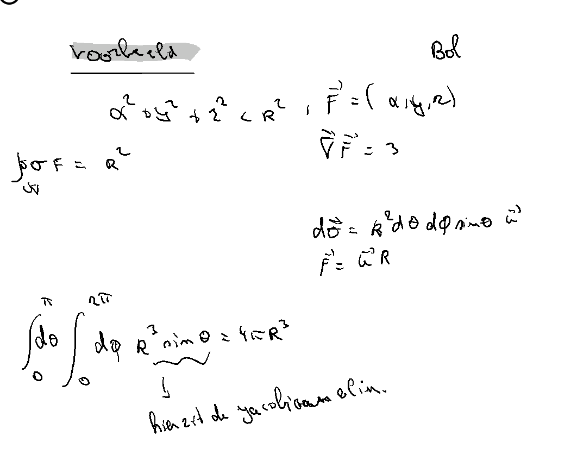 voorbeeld
Bol
x² + y² + z² < R² , F⃗ = ( x, y, z)
∇⃗ F⃗ = 3
∮ dσ F = R²
dσ⃗ = R² dθ dφ sin θ u⃗
F⃗ = u⃗ R
∫₀^π dθ ∫₀^2π dφ R³ sin θ = 4πR³
hier zit de jacobiaan al in.